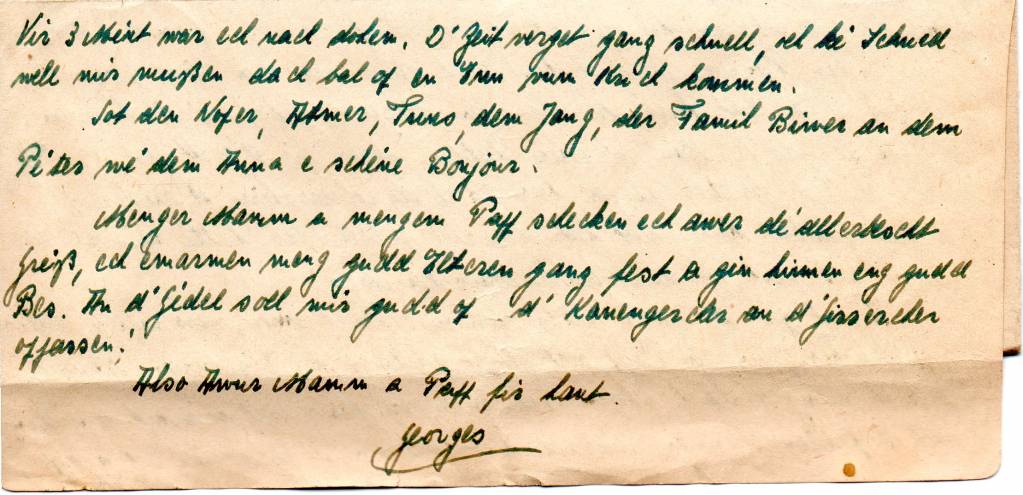 Vir 3 Méint war ech nach dohem. D'Zeit verget gang schnell, och hé Schued
well mir mußen dach bal of en Enn vum Krich kommen.
Sot den Noper, Atmer, Funs, dem Jang, der Famil Birver an dem
Péter wé dem Anna e schéine Bonjour.
Menger Mamm a mengem Papp schecken ech awer dé allerbescht
Greiß, ech emarmen meng gudd Elteren gang fest a gin hinnen eng gudd
Bes. An d'Gédel soll mir gudd of d' Kanengercher an d'Gissercher
opassen!
Also Awur Mamm a Papp fir haut.
Georges